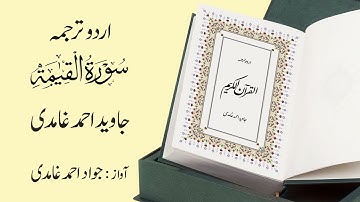 اردو ترجمہ
سُورَةُ الْقِيٰمَةِ
جاوید احمد غامدی
آواز : جواد احمد غامدی
اردو ترجمہ
القرآن الکریم
جاوید احمد غامدی